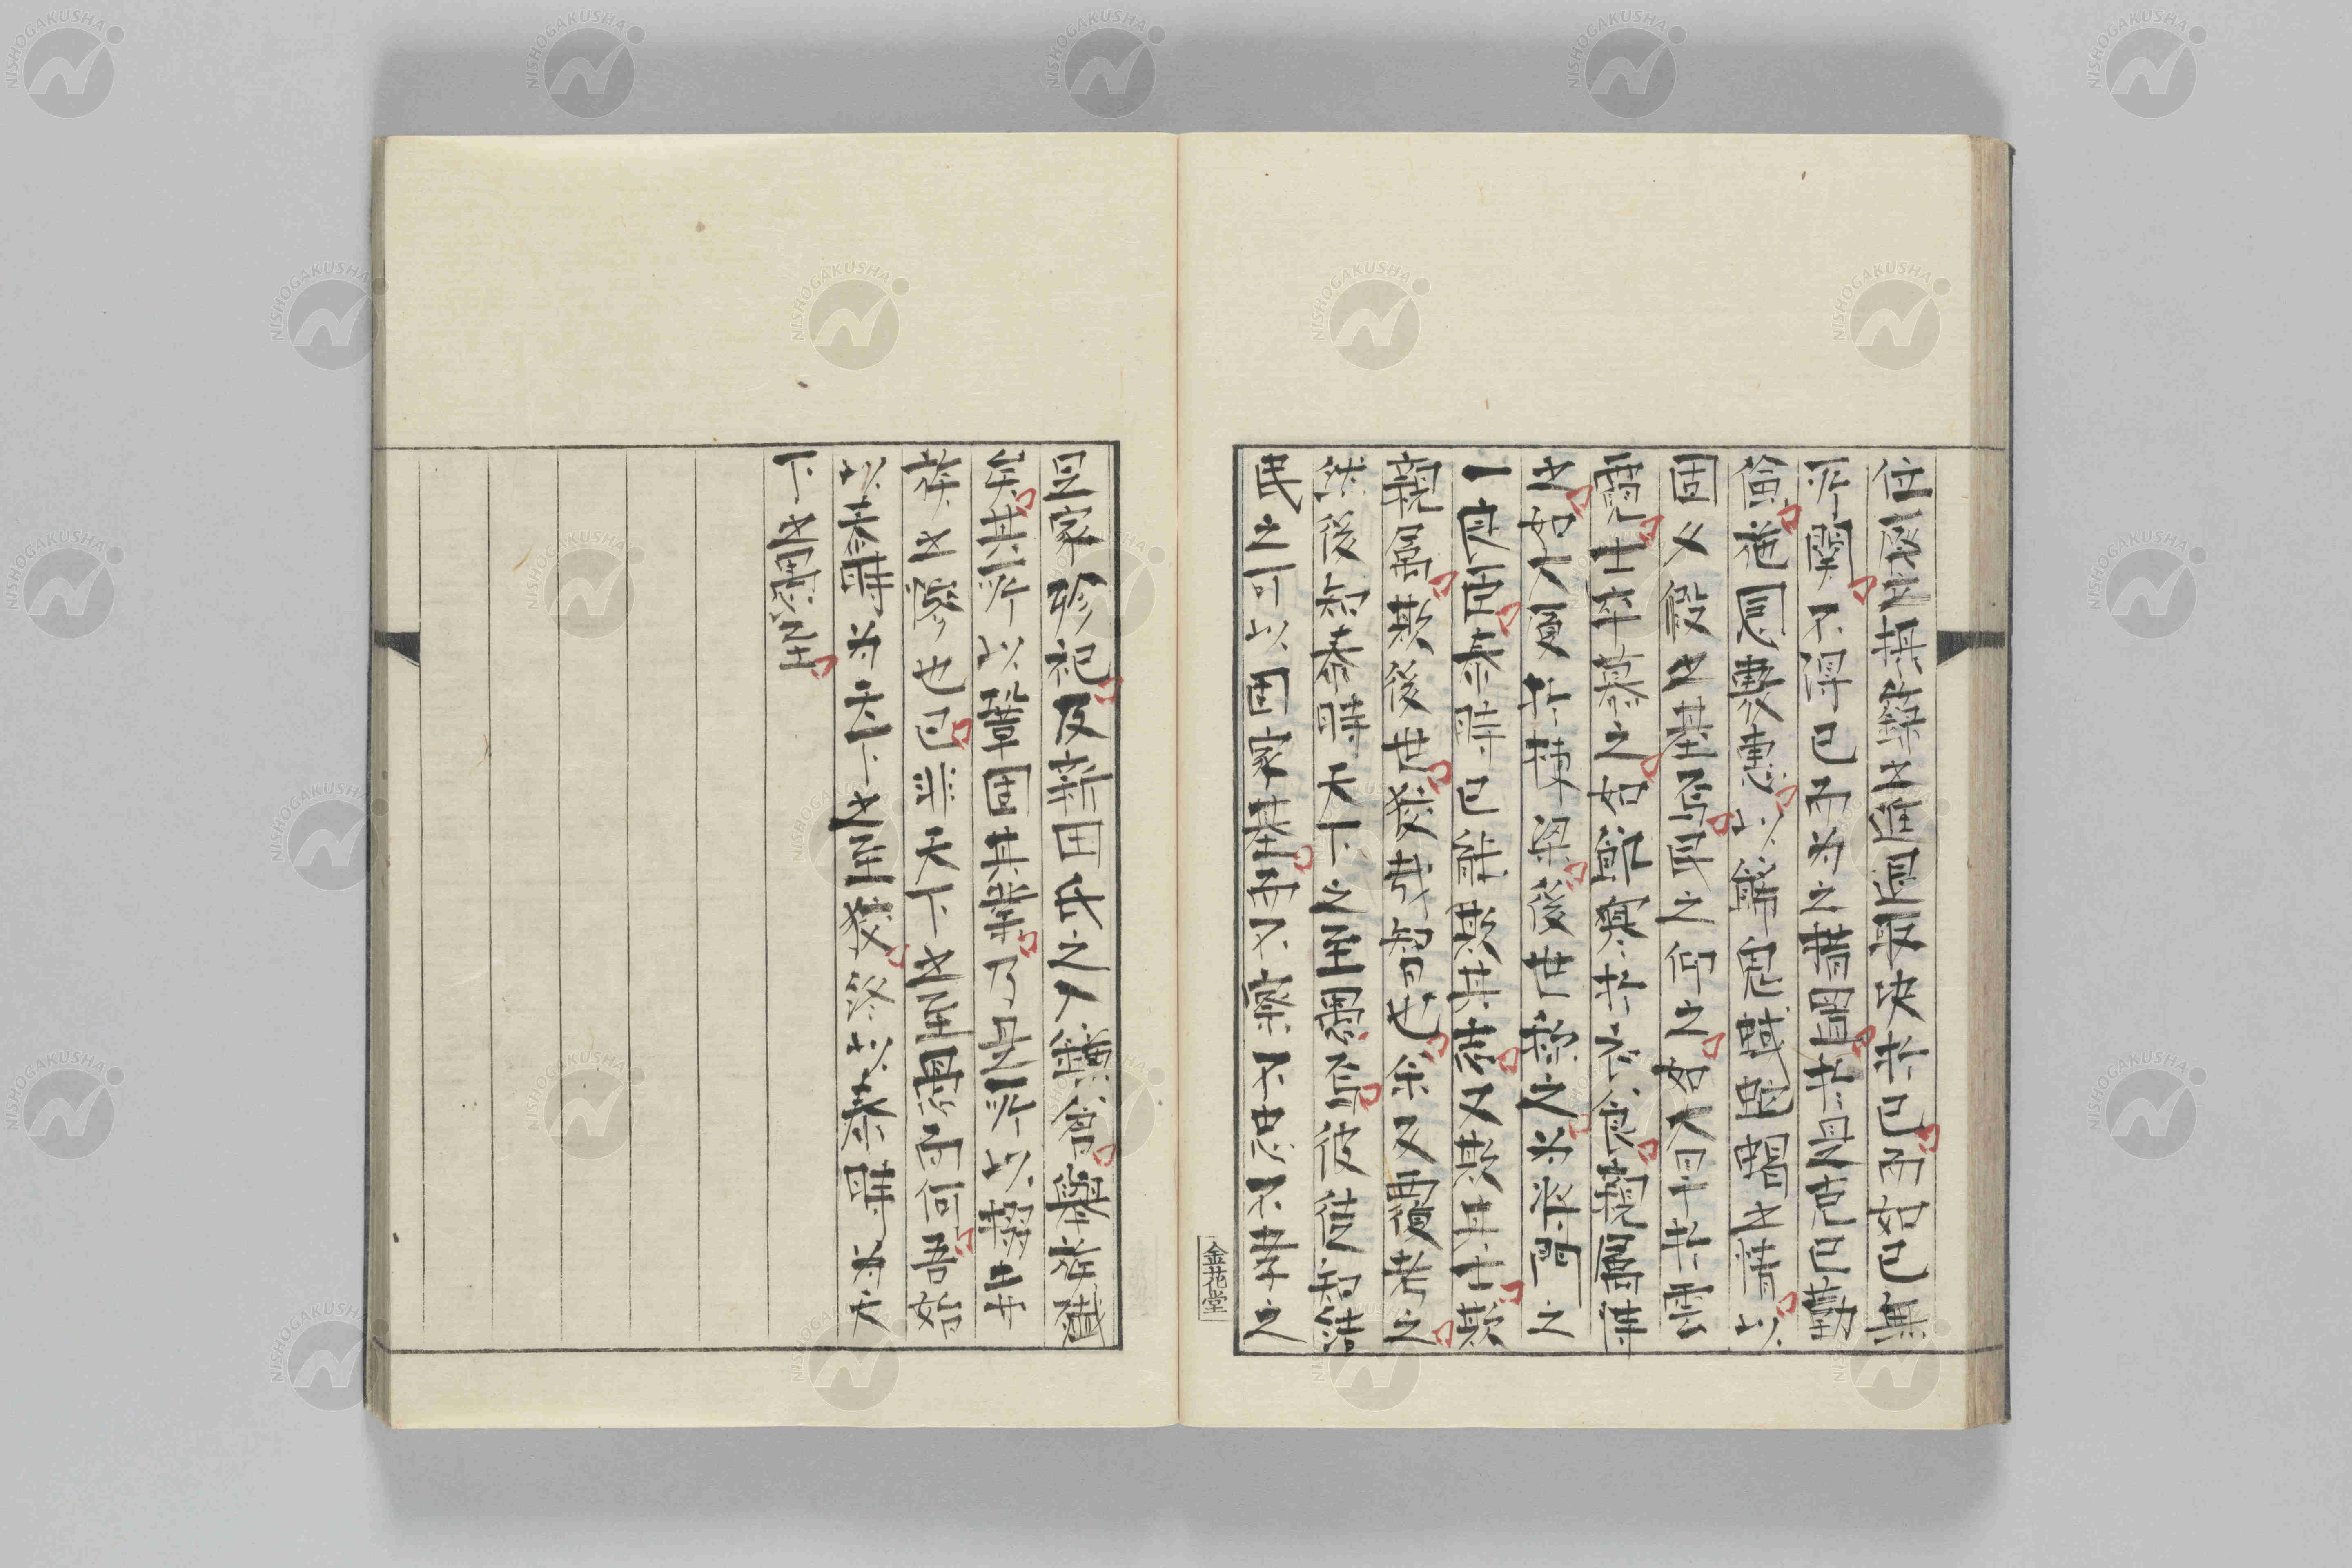 任廢之損築之進退取決於己而如己無
所關不得已而為之措置於是克己勤
儉施恩憲惠以解鬼蜮蛇蝎之情以
固父假之基焉民之仰之如大旱於雲
霓士卒慕之如飢寒於衣食親屬恃
之如大廈於棟梁後世稱之為將門之
一良臣泰時已能欺其君又欺其士欺
親屬欺後世姦哉智也余又覆考之
然後知泰時天下之至愚焉彼徒知結
民之可以固家基而不察不忠不孝之
足家殄祀及辭田氏之人
矣其所以鞏固其業乃是所以
族之也已非天下之至愚而何吾始
以泰時為天下之至姦終以泰時為天
下之至愚
金花堂
NISHOGAKUSHA